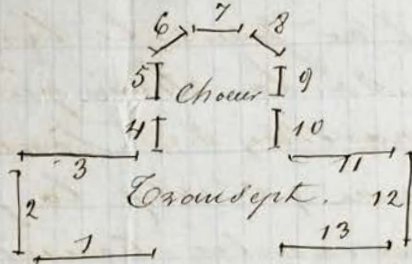 6 7 8
5 Choeur 9
4 10
3 11
2 Transept. 12
1 13